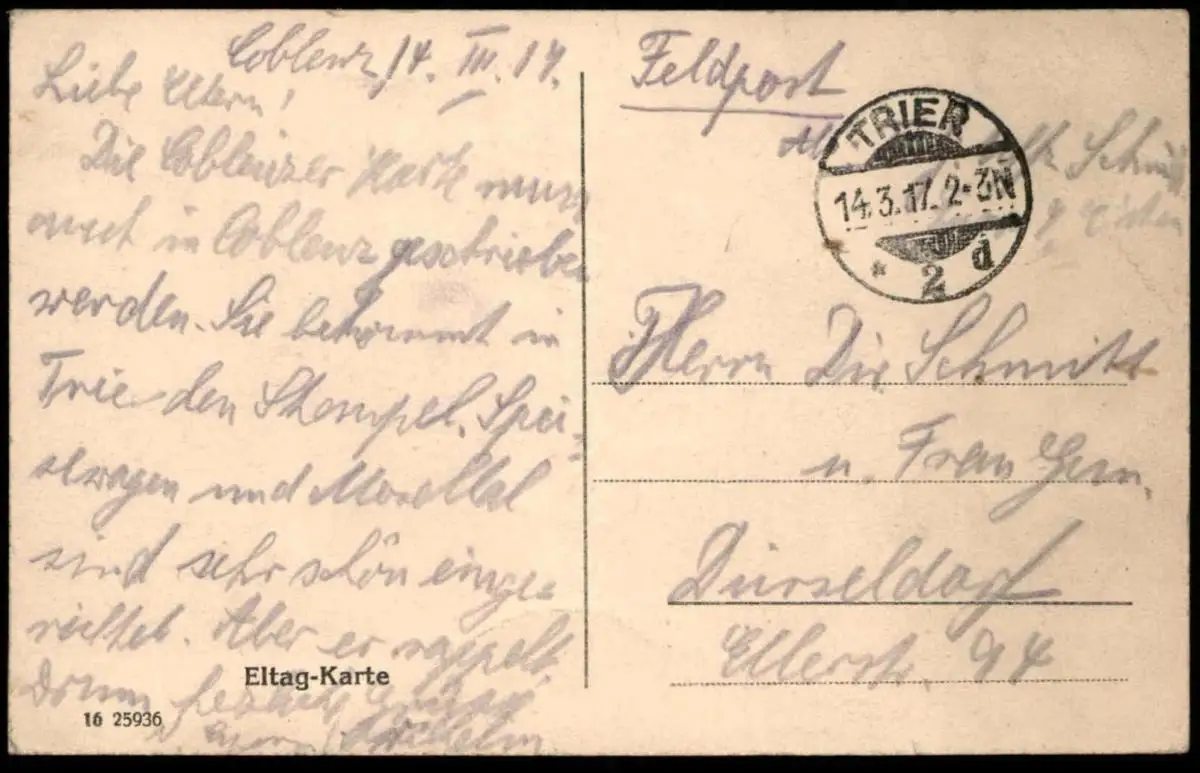 Coblenz, 14. III. 17.
Liebe Eltern!
Die Coblenzer Karte muss
auch in Coblenz geschrieben
werden. Sie bekommt in
Trier den Stempel. Spei-
sewagen und Moseltal
sind sehr schön einge-
richtet. Aber er rappelt.
Drum herzliche Grüsse
Wilhelm
Eltag-Karte
16 25936
Feldpost
TRIER
14.3.17. 2-3N
* 2 d
Schmitt
Herrn Dir. Schmitt
u. Frau Gem.
Düsseldorf
Ellerstr. 94